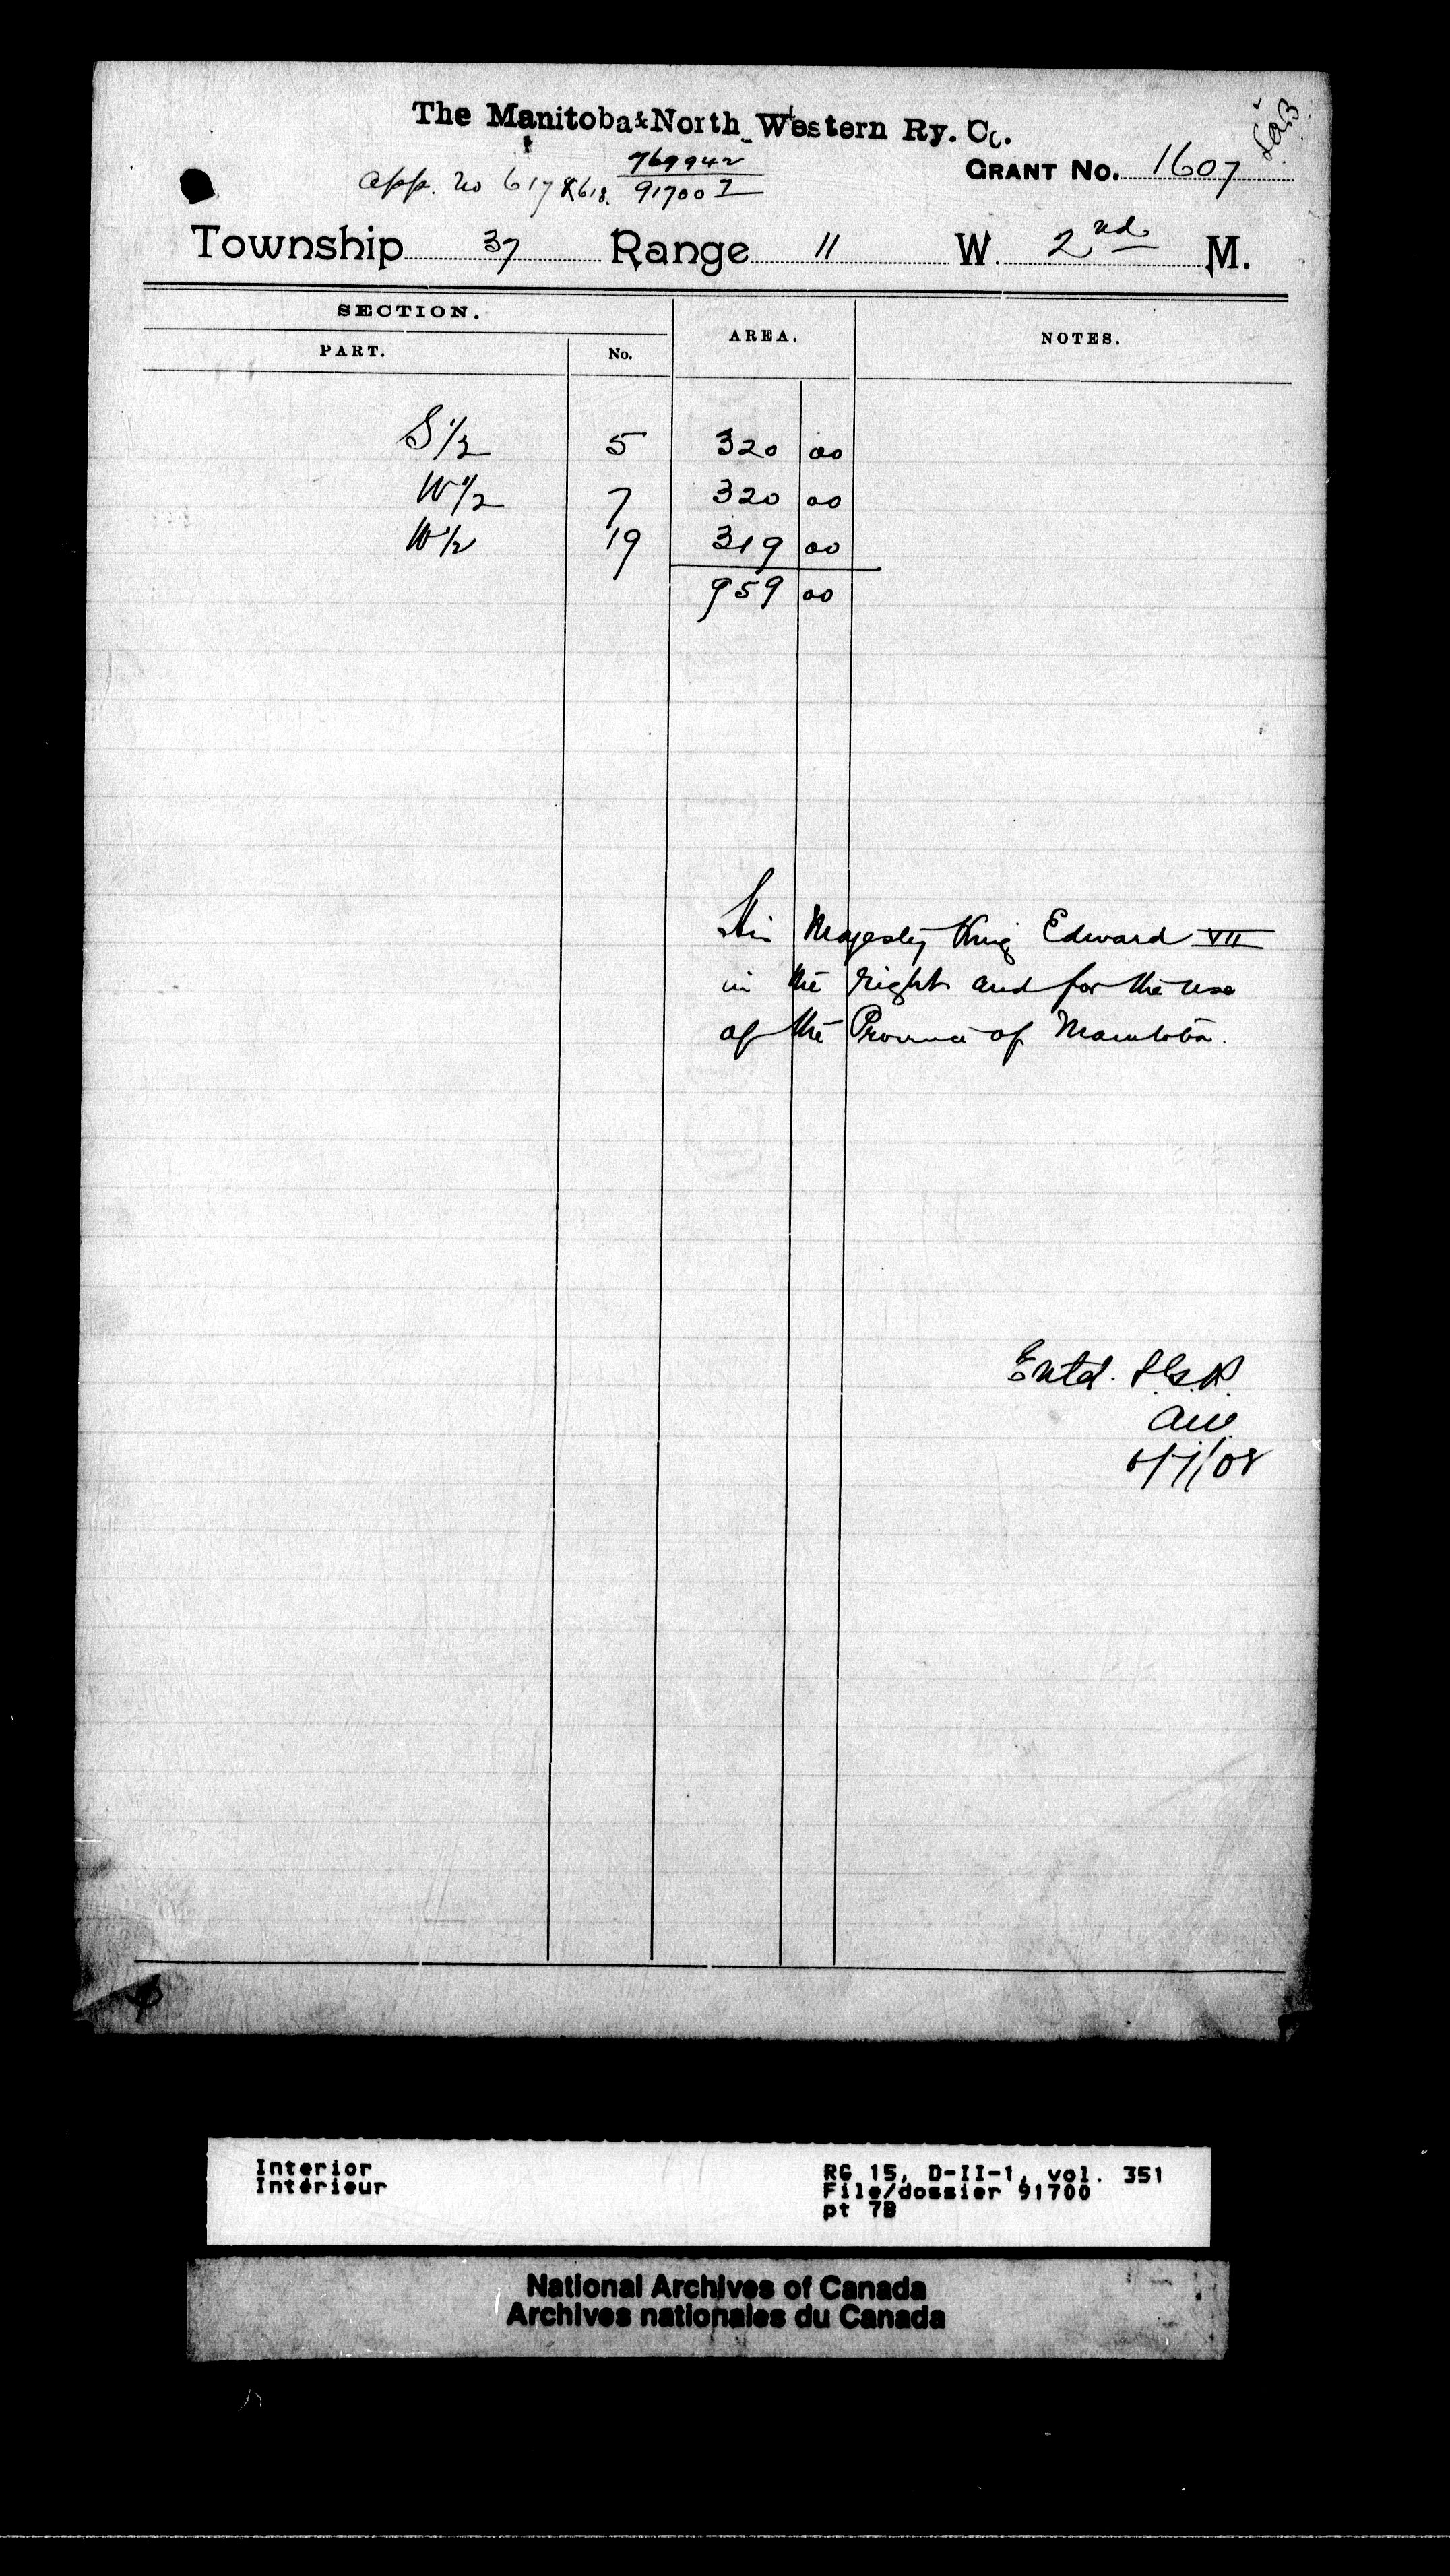 The Manitoba & North Western Ry. Co.
App. No 617 & 618. 769942
91700 I
GRANT NO. 1607
Township 37 Range 11 W. 2nd M.
SECTION.
PART. No. AREA. NOTES.
S 1/2 5 320 00
W 1/2 7 320 00
W 1/2 19 319 00
959 00
His Majesty King Edward VII
in the right and for the use
of the Province of Manitoba.
Entd.
Interior
Intérieur
RG 15, D-II-1, vol. 351
File/dossier 91700
pt 7B
National Archives of Canada
Archives nationales du Canada